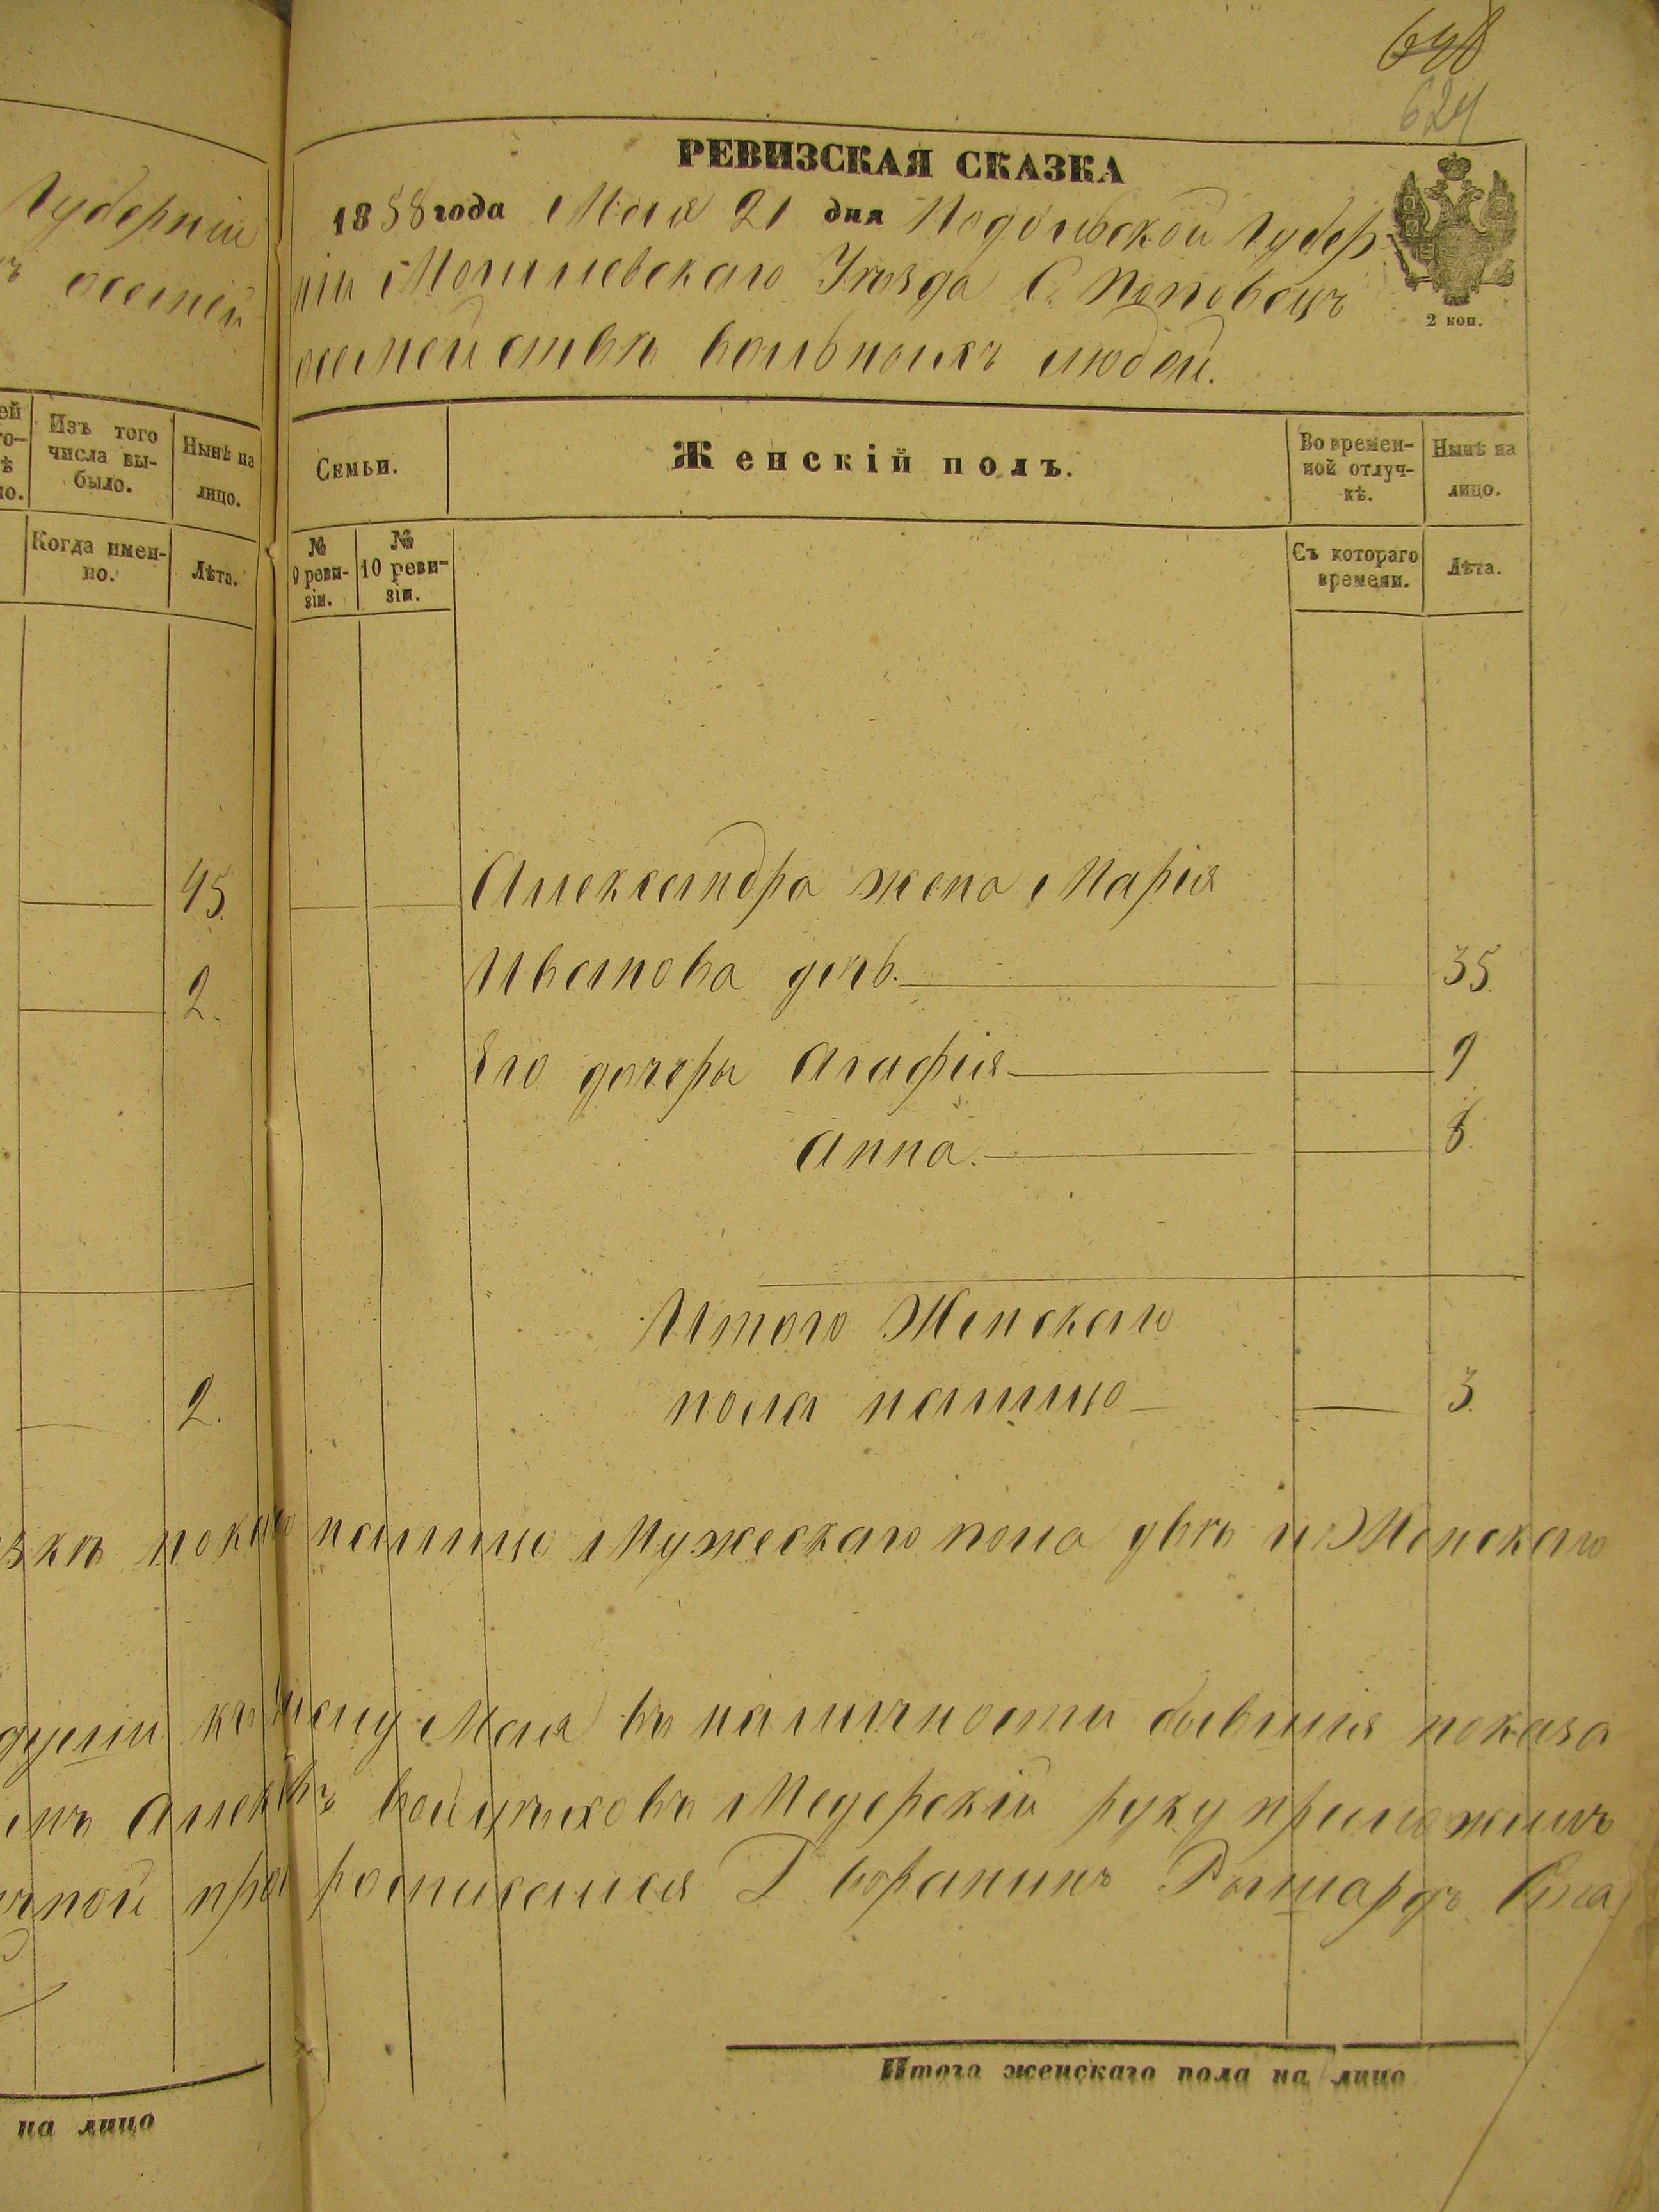 648
624
Губерніи
осмей
ей
го-
ѣ
но.
Изъ того
числа вы-
было.
Нынѣ на
лицо.
Когда имен-
но.
Лѣта.
45.
2.
2.
на лицо
РЕВИЗСКАЯ СКАЗКА
1858 года Мая 21 дня Подольской Губер
ніи Могилевскаго Уѣзда С. Поповецъ
осмействѣ вольныхъ людей.
2 коп.
Семьи.
Женскій полъ.
Во времен-
ной отлуч-
кѣ.
Нынѣ на
лицо.
№
9 реви-
зіи.
№
10 реви-
зіи.
Съ котораго
времени.
Лѣта.
Александра жена Марія
Иванова дочь. 35.
Его дочеры Агафія 9.
Анна. 8.
Итого Женскаго
пола налицо 3.
налицо Мужескаго пола двѣ и Женскаго
Мая въ наличности бывшія показа
Войцѣховъ Медерскій руку приложилъ
росписался Дворанинъ Рышардъ Ста
Итого женскаго пола на лицо